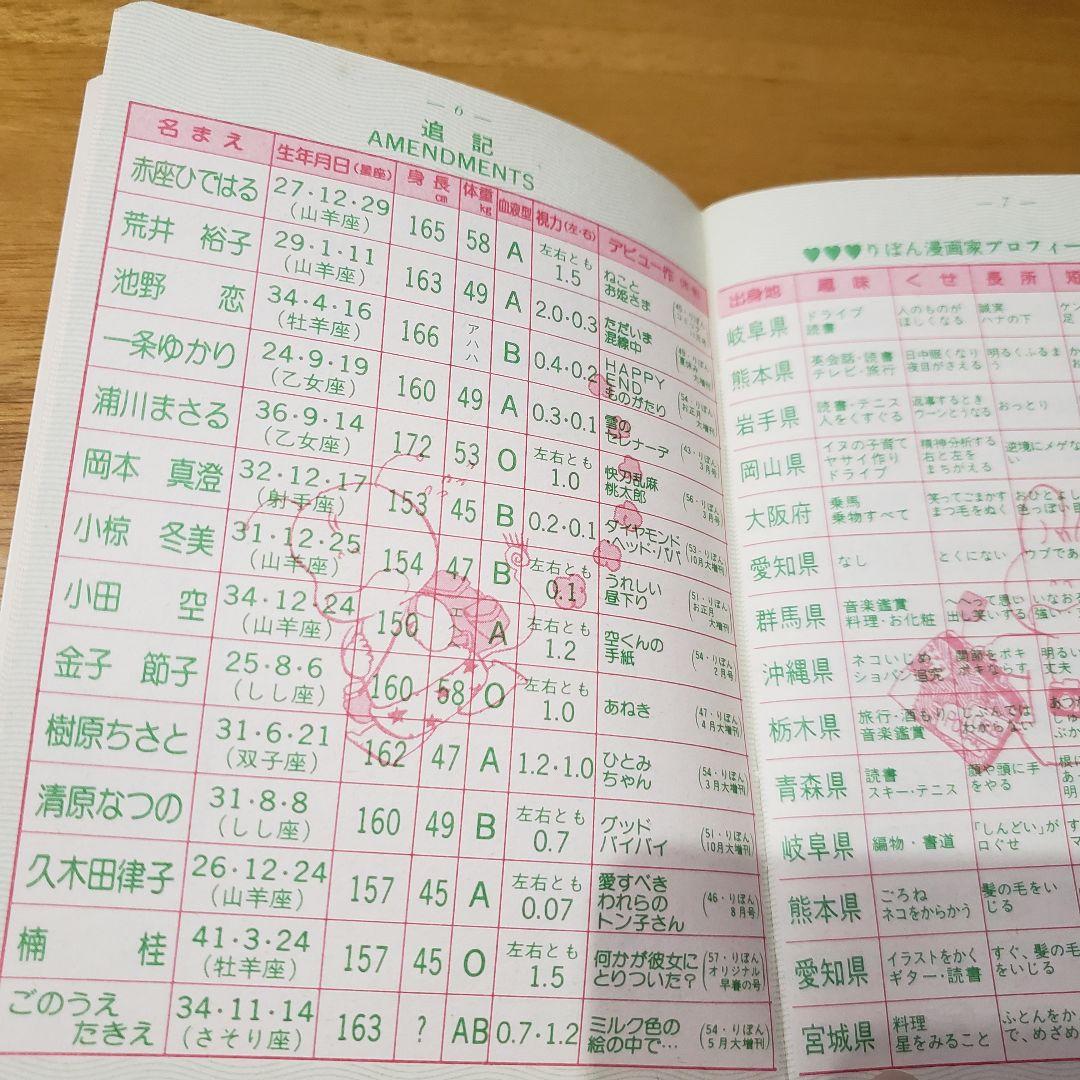 — 6 —
追記
AMENDMENTS
名まえ 生年月日(星座) 身長cm 体重kg 血液型 視力(左・右) デビュー作
赤座ひではる 27・12・29 (山羊座) 165 58 A 左右とも 1.5 ねことお姫さま
荒井 裕子 29・1・11 (山羊座) 163 49 A 2.0・0.3 ただいま混線中
池野 恋 34・4・16 (牡羊座) 166 アハハ B 0.4・0.2 HAPPY ENDものがたり (54・りぼんお正月大増刊)
一条ゆかり 24・9・19 (乙女座) 160 49 A 0.3・0.1 雪のセレナーデ (43・りぼん3月号)
浦川まさる 36・9・14 (乙女座) 172 53 O 左右とも 1.0 快刀乱麻桃太郎 (56・りぼん3月号)
岡本 真澄 32・12・17 (射手座) 153 45 B 0.2・0.1 ダイヤモンド・ヘッド・パパ (53・りぼん10月大増刊)
小椋 冬美 31・12・25 (山羊座) 154 47 B 左右とも 0.1 うれしい昼下り (51・りぼんお正月大増刊)
小田 空 34・12・24 (山羊座) 150 A 左右とも 1.2 空くんの手紙 (54・りぼん2月号)
金子 節子 25・8・6 (しし座) 160 58 O 左右とも 1.0 あねき (47・りぼん4月大増刊)
樹原ちさと 31・6・21 (双子座) 162 47 A 1.2・1.0 ひとみちゃん (54・りぼん3月大増刊)
清原なつの 31・8・8 (しし座) 160 49 B 左右とも 0.7 グッドバイバイ (51・りぼん10月大増刊)
久木田律子 26・12・24 (山羊座) 157 45 A 左右とも 0.07 愛すべきわれらのトン子さん (46・りぼん8月号)
楠 桂 41・3・24 (牡羊座) 157 45 O 左右とも 1.5 何かが彼女にとりついた? (57・りぼんオリジナル早春の号)
ごのうえたきえ 34・11・14 (さそり座) 163 ? AB 0.7・1.2 ミルク色の絵の中で… (54・りぼん5月大増刊)
— 7 —
♥♥♥りぼん漫画家プロフィー
出身地 趣味 くせ 長所 短
岐阜県 ドライブ 読書 人のものがほしくなる 誠実 ハナの下 ケン 足
熊本県 英会話・読書 テレビ・旅行 日中眠くなり夜目がさえる 明るくふるまう
岩手県 読書・テニス 人をくすぐる 返事するときウーンとうなる おっとり
岡山県 イヌの子育て ヤサイ作り ドライブ 精神分析する 右と左をまちがえる 逆境にメゲない
大阪府 乗馬 乗物すべて 笑ってごまかす まつ毛をぬく おひとよし 色っぽい目
愛知県 なし とくにない ウブであ
群馬県 音楽鑑賞 料理・お化粧 って思い出し笑いする
沖縄県 ネコいじめ ショパン追究 関節をポキポキならす 明るい 丈夫
栃木県 旅行・酒もり 音楽鑑賞 じぶんではわからない
青森県 読書 スキー・テニス 顔や頭に手をやる
岐阜県 編物・書道 「しんどい」が口ぐせ
熊本県 ごろね ネコをからかう 髪の毛をいじる
愛知県 イラストをかく ギター・読書 すぐ、髪の毛をいじる
宮城県 料理 星をみること ふとんをか で、めざめ